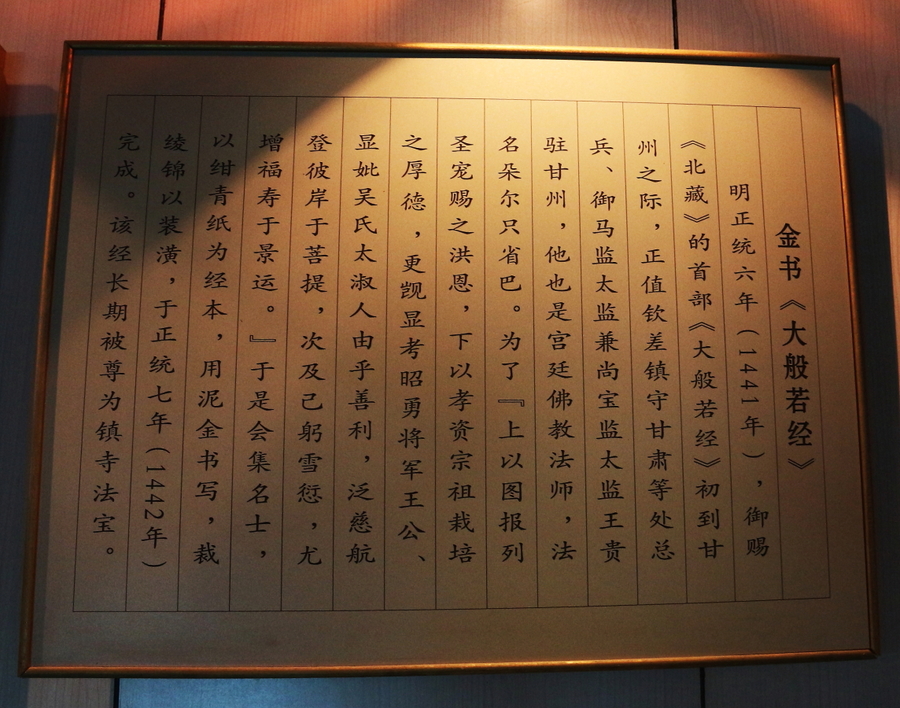 金书《大般若经》
明正统六年（1441年），御赐
《北藏》的首部《大般若经》初到甘
州之际，正值钦差镇守甘肃等处总
兵、御马监太监兼尚宝监太监王贵
驻甘州，他也是宫廷佛教法师，法
名朵尔只省巴。为了『上以图报列
圣宠赐之洪恩，下以孝资宗祖栽培
之厚德，更觊显考昭勇将军王公、
显妣吴氏太淑人由乎善利，泛慈航
登彼岸于菩提，次及己躬雪愆，尤
增福寿于景运。』于是会集名士，
以绀青纸为经本，用泥金书写，裁
绫锦以装潢，于正统七年（1442年）
完成。该经长期被尊为镇寺法宝。